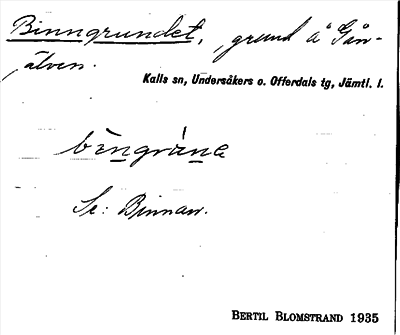 Binngrundet, grund i Gån-
älven.
Kalls sn, Undersåkers o. Offerdals tg, Jämtl. l.
Se: Binnan.
BERTIL BLOMSTRAND 1935